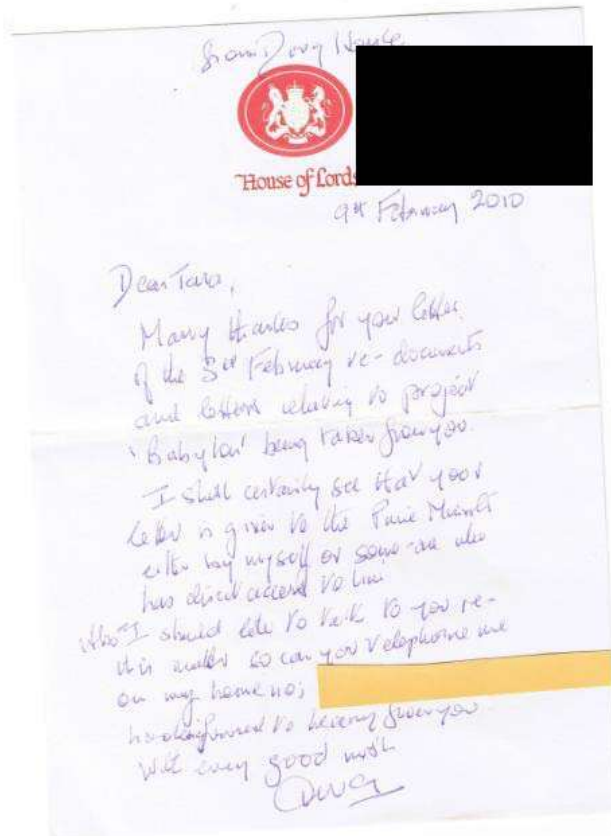 from Doug Hoyle
House of Lords
9th February 2010
Dear Tara,
Many thanks for your letter
of the 3rd February re-documents
and letters relating to project
'Babylon' being taken from you.
I shall certainly see that your
letter is given to the Prime Minister
either by myself or some-one who
has direct access to him
Also I should like to talk to you re-
this matter so can you telephone me
on my home no;
looking forward to hearing from you
With every good wish
Doug